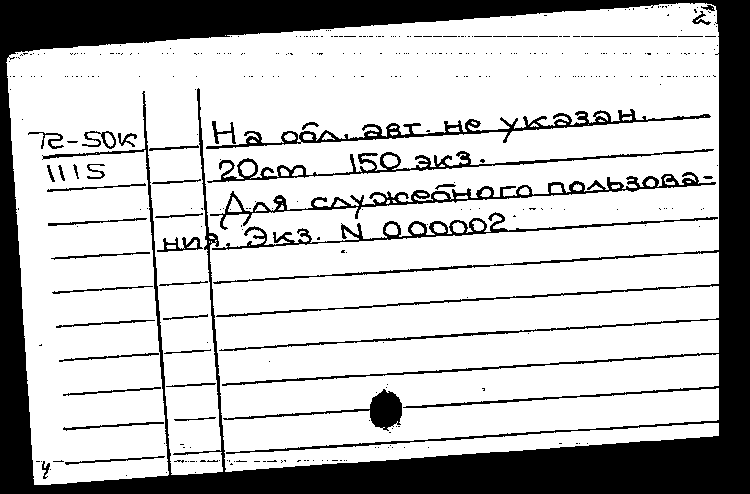 2
72-50К На обл. авт. не указан.
1115 20cm. 150 экз.
Для служебного пользова-
ния. Экз. N 000002.
4